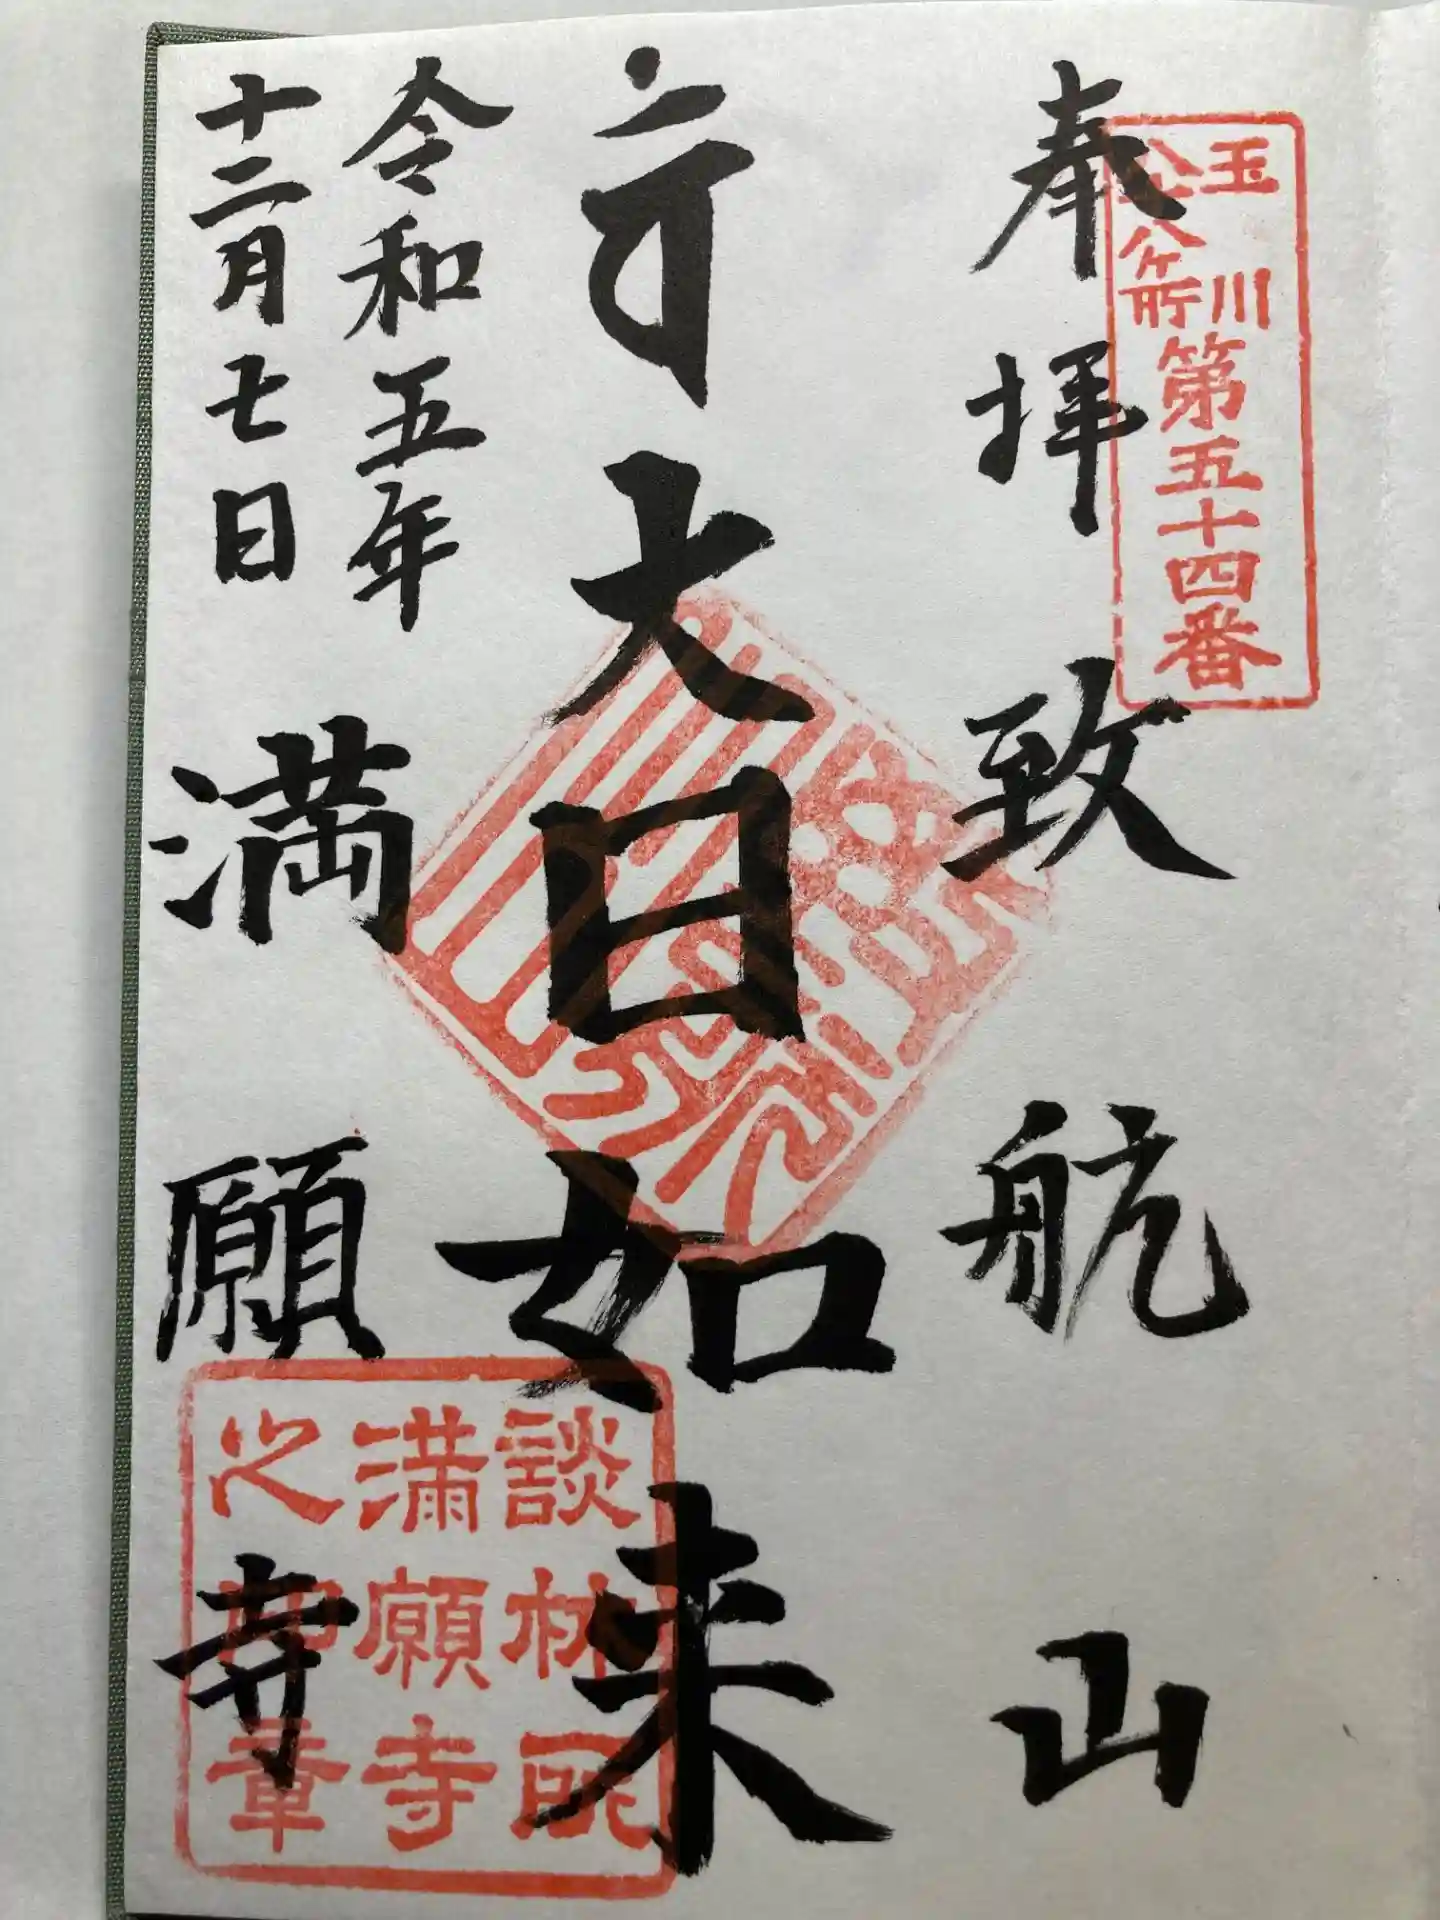 玉川
八十八ヶ所
第五十四番
奉拝
致航山
大日如来
令和五年
十二月七日
満願寺
談林所
満願寺
之印章